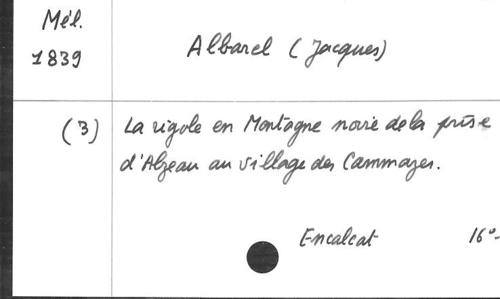 Mél.
1839
Albarel (Jacques)
(3) La rigole en Montagne noire de la prise
d'Alzeau au village des Cammazes.
Encalcat 16°-